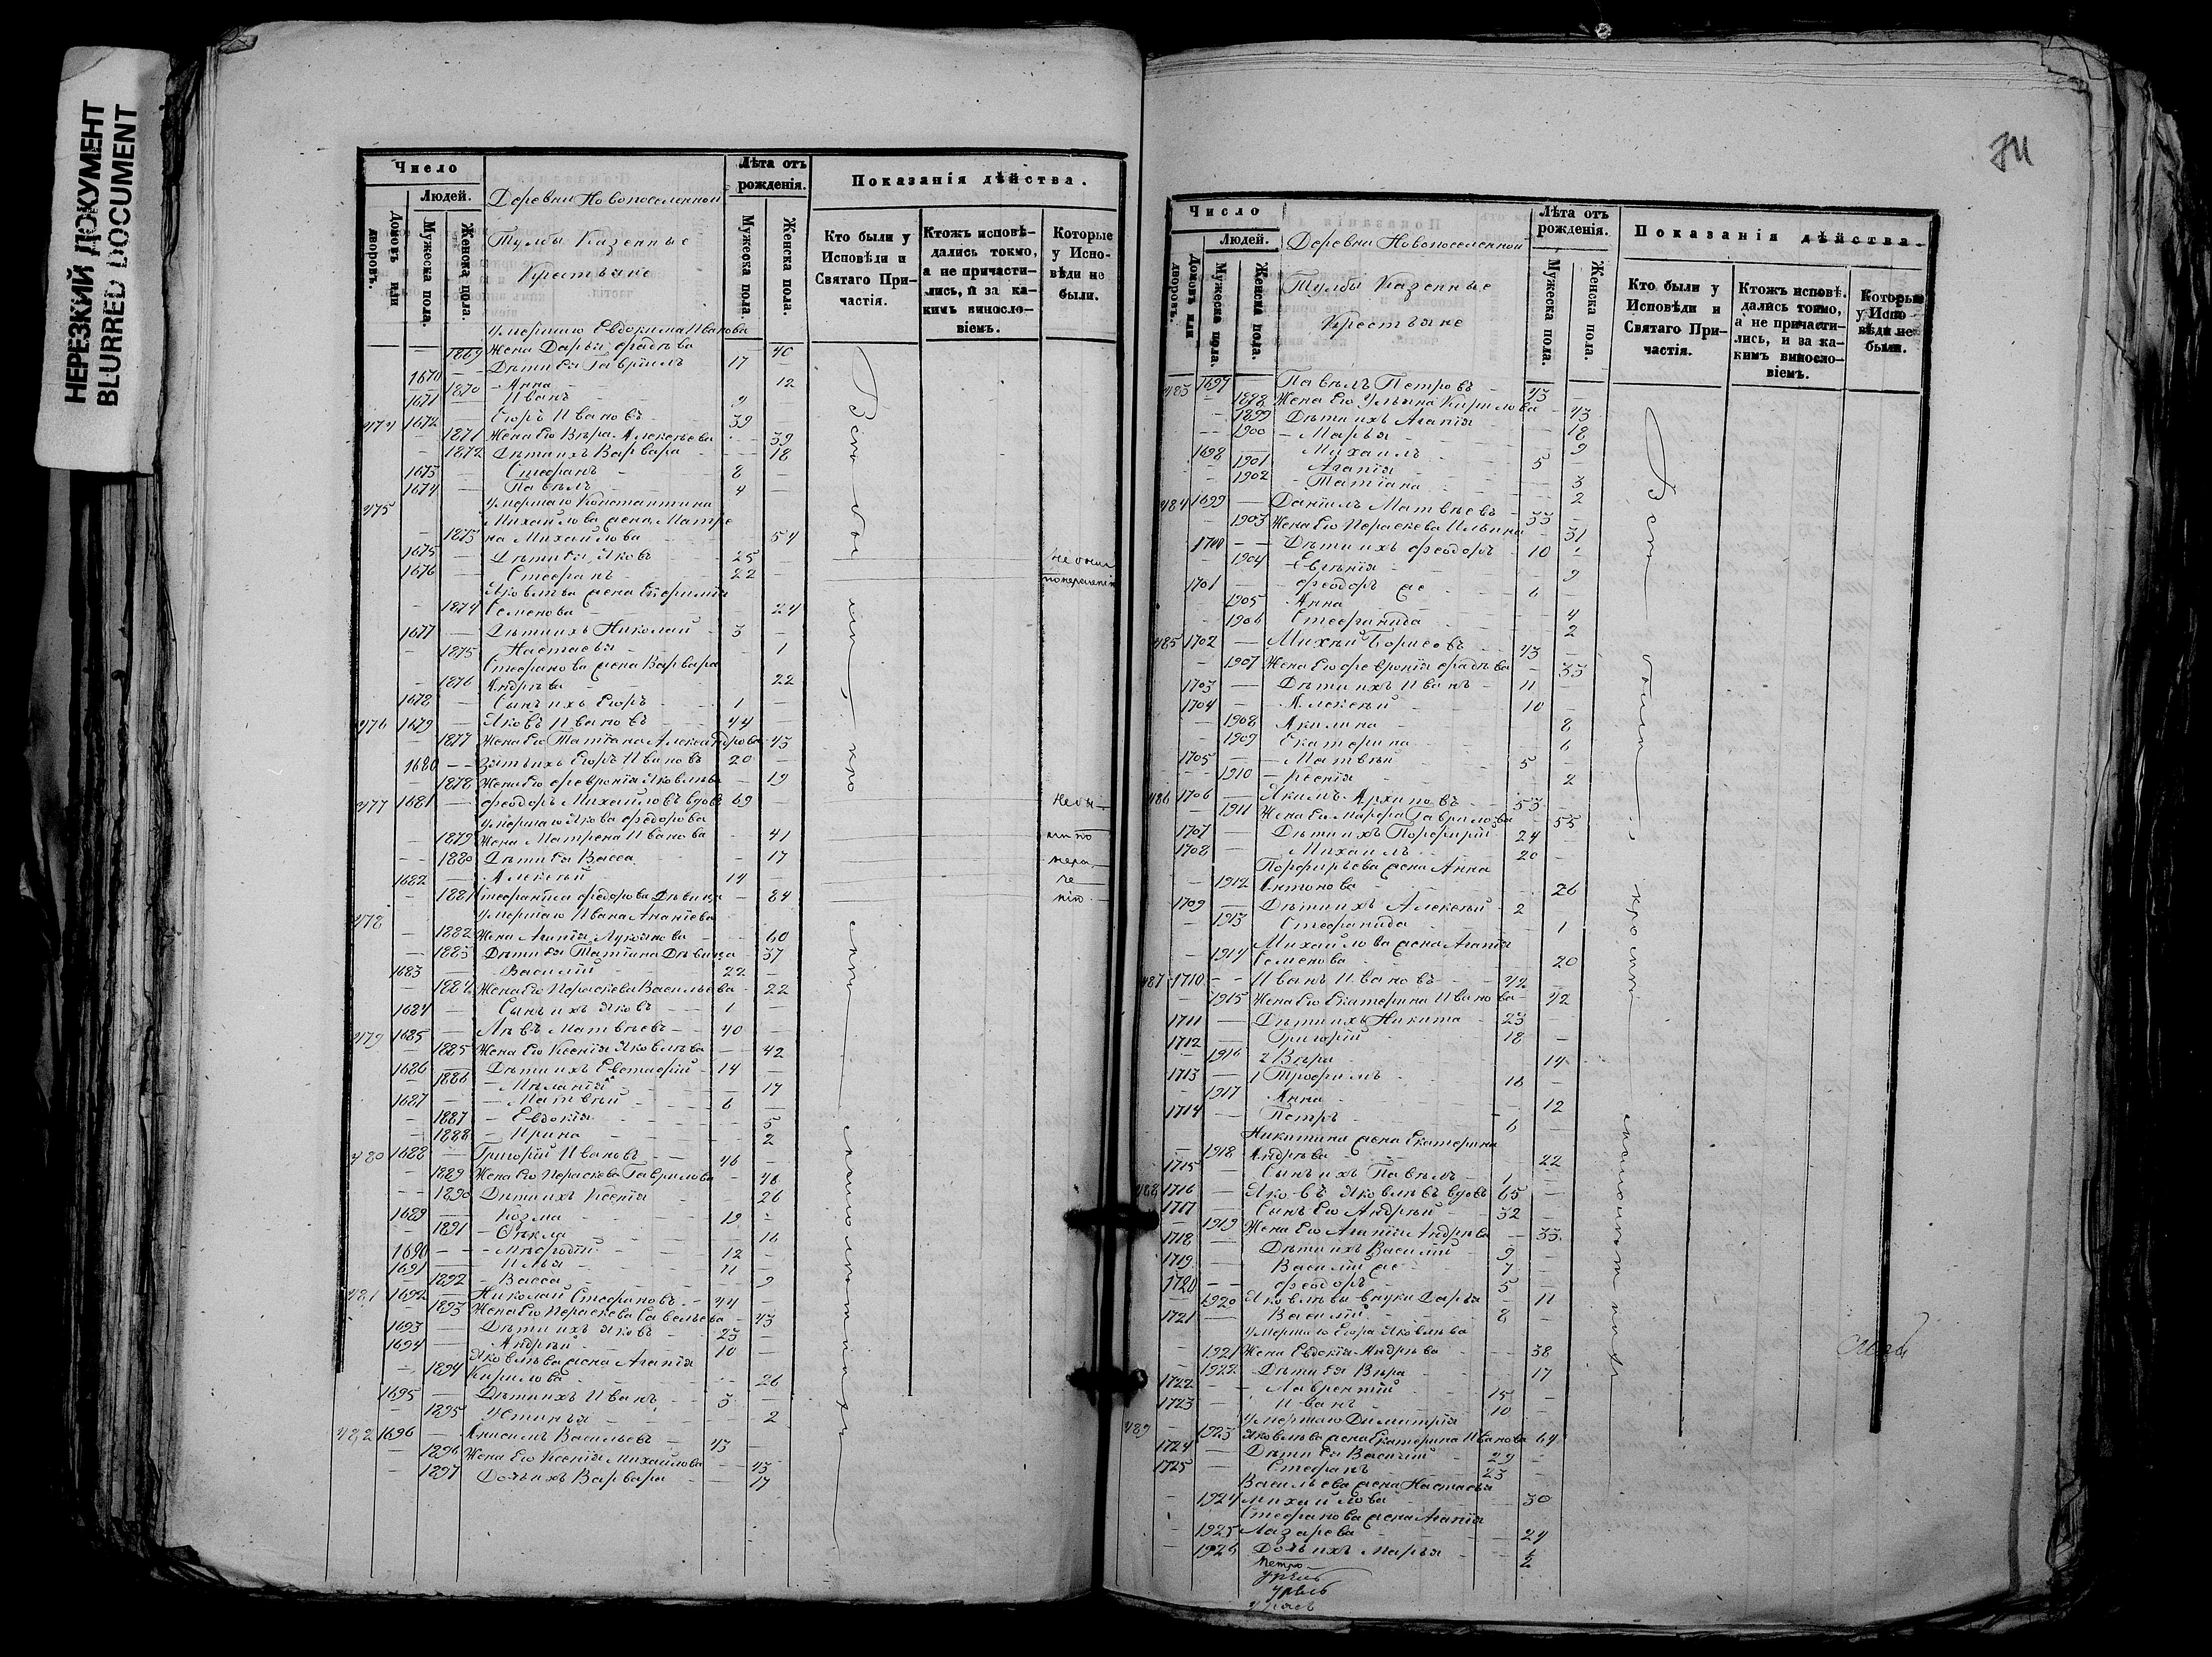 НЕРЕЗКИЙ ДОКУМЕНТ
BLURRED DOCUMENT
Число
Людей.
Домовъ или дворовъ.
Мужеска пола.
Женска пола.
Деревни Новопоселенной
Тулбы Казенные
Крестьяне
Лѣта отъ рожденія.
Мужеска пола.
Женска пола.
Показанія дѣйства.
Кто были у Исповѣди и Святаго Причастія.
Ктожъ исповѣдались токмо, а не причастились, и за какимъ винословіемъ.
Которые у Исповѣди не были.
умершаго Евдокима Иванова
1869 Жена Дарья Фадѣва 40
1670 Дѣти ея Гавріилъ 17
1870 Анна 12
1671 Иванъ 9
474 1672 Егоръ Ивановъ 39
1871 Жена его Вѣра Алексѣева 39
1872 Дѣти ихъ Варвара 18
1673 Стефанъ 8
1674 Павелъ 4
475 умершаго Константина
Михайлова жена Матре
1873 на Михайлова 54
1675 Дѣти ея Яковъ 25
1676 Стефанъ 22
Яковлева жена Евфимія
1874 Семенова 24
1677 Дѣти ихъ Николай 3
1875 Настасья 1
Стефанова жена Варвара
1876 Андрѣва 22
1678 Сынъ ихъ Егоръ 1
476 1679 Яковъ Ивановъ 44
1877 Жена его Татіана Александрова 43
1680 Зять ихъ Егоръ Ивановъ 20
1878 Жена его Февронія Яковлева 19
477 1681 Феодоръ Михайловъ вдовъ 69
умершаго Якова Федорова
1879 Жена Матрена Иванова 41
1880 Дѣти ея Васса 17
1682 Алексѣй 14
1881 Стефанида Федорова Дѣвица 84
478 умершаго Ивана Ананіева
1882 Жена Агапія Лукоянова 60
1883 Дѣти ея Татіана Дѣвица 37
1683 Василій 22
1884 Жена его Параскева Васильева 22
1684 Сынъ ихъ Яковъ 1
479 1685 Левъ Матвѣевъ 40
1885 Жена его Ксенія Яковлева 42
1686 Дѣти ихъ Евстафій 14
1886 Меланія 17
1687 Матвѣй 6
1887 Евдокія 5
1888 Ирина 2
480 1688 Григорій Ивановъ 46
1889 Жена его Параскева Гаврилова 46
1890 Дѣти ихъ Ксенія 26
1689 Козма 19
1891 Ѳекла 16
1690 Меѳодій 12
1691 Илья 11
1892 Васса 9
481 1692 Николай Стефановъ 44
1893 Жена его Параскева Савельева 43
1693 Дѣти ихъ Яковъ 23
1694 Андрѣй 10
Яковлева жена Агапія
1894 Кирилова 26
1695 Дѣти ихъ Иванъ 3
1895 Устинья 2
482 1696 Анисимъ Васильевъ 43
1896 Жена его Ксенія Михайлова 43
1897 Дочь ихъ Варвара 17
Число
Людей.
Домовъ или дворовъ.
Мужеска пола.
Женска пола.
Деревни Новопоселенной
Тулбы Казенные
Крестьяне
Лѣта отъ рожденія.
Мужеска пола.
Женска пола.
Показанія дѣйства.
Кто были у Исповѣди и Святаго Причастія.
Ктожъ исповѣдались токмо, а не причастились, и за какимъ винословіемъ.
Которые у Исповѣди не были.
483 1697 Павелъ Петровъ 43
1898 Жена его Ульяна Кирилова 43
1899 Дѣти ихъ Агапія 18
1900 Марья 9
1698 Михаилъ 5
1901 Агапія 3
1902 Татіана 2
484 1699 Даніилъ Матвѣевъ 33
1903 Жена его Параскева Ильина 31
1700 Дѣти ихъ Феодоръ 10
1904 Евгенія 9
1701 Феодоръ же 6
1905 Анна 4
1906 Стефанида 2
485 1702 Михѣй Борисовъ 43
1907 Жена его Февронія Фадѣва 33
1703 Дѣти ихъ Иванъ 11
1704 Алексѣй 10
1908 Акилина 8
1909 Екатерина 6
1705 Матвѣй 5
1910 Ксенія 2
486 1706 Якимъ Архиповъ 53
1911 Жена его Марфа Гаврилова 55
1707 Дѣти ихъ Порфирій 24
1708 Михаилъ 20
Порфирьева жена Анна
1912 Антонова 26
1709 Дѣти ихъ Алексѣй 2
1913 Стефанида 1
Михайлова жена Агапія
1914 Семенова 20
487 1710 Иванъ Ивановъ 42
1915 Жена его Екатерина Иванова 42
1711 Дѣти ихъ Никита 23
1712 Григорій 18
1916 2 Вѣра 14
1713 1 Трофимъ 16
1917 Анна 12
1714 Петръ 6
Никитина жена Екатерина
1918 Андрѣва 22
1715 Сынъ ихъ Павелъ 1
488 1716 Яковъ Яковлевъ вдовъ 65
1717 Сынъ его Андрѣй 32
1919 Жена его Агапія Андрѣва 33
1718 Дѣти ихъ Василій 9
1719 Василій же 7
1720 Феодоръ 5
1920 Яковлевы внуки Дарья 11
1721 Василій 8
умершаго Егора Яковлева
1921 Жена Евдокія Андрѣва 38
1922 Дѣти ея Вѣра 17
1722 Лаврентій 15
1723 Иванъ 10
489 умершаго Димитрія
1923 Яковлева жена Екатерина Иванова 64
1724 Дѣти ея Василій 29
1725 Стефанъ 23
Васильева жена Настасья
1924 Михайлова 30
Стефанова жена Агапія
1925 Лазарева 24
1926 Дочь ихъ Марья